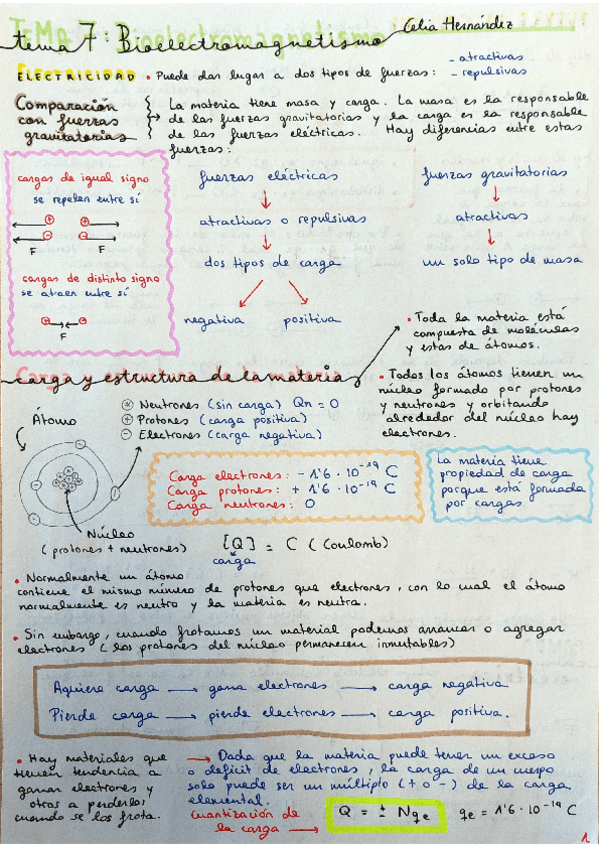 Tema 7: Bioelectromagnetismo
Celia Hernández
ELECTRICIDAD • Puede dar lugar a dos tipos de fuerzas:
- atractivas
- repulsivas
Comparación
con fuerzas
gravitatorias
La materia tiene masa y carga. La masa es la responsable
de las fuerzas gravitatorias y la carga es la responsable
de las fuerzas eléctricas. Hay diferencias entre estas
fuerzas:
cargas de igual signo
se repelen entre sí
+ +
- -
F F
cargas de distinto signo
se atraen entre sí
+ -
F
fuerzas eléctricas
↓
atractivas o repulsivas
↓
dos tipos de carga
negativa positiva
fuerzas gravitatorias
↓
atractivas
↓
un solo tipo de masa
• Toda la materia está
compuesta de moléculas
y estas de átomos.
Carga y estructura de la materia
• Todos los átomos tienen un
núcleo formado por protones
y neutrones y orbitando
alrededor del núcleo hay
electrones.
Átomo
Neutrones (sin carga) Qn = 0
+ Protones (carga positiva)
- Electrones (carga negativa)
Núcleo
(protones + neutrones)
Carga electrones: - 1'6 · 10⁻¹⁹ C
Carga protones: + 1'6 · 10⁻¹⁹ C
Carga neutrones: 0
La materia tiene
propiedad de carga
porque está formada
por cargas
[Q] = C (Coulomb)
carga
• Normalmente un átomo
contiene el mismo número de protones que electrones, con lo cual el átomo
normalmente es neutro y la materia es neutra.
• Sin embargo, cuando frotamos un material podemos arrancar o agregar
electrones (los protones del núcleo permanecen inmutables)
Aquiere carga → gana electrones → carga negativa
Pierde carga → pierde electrones → carga positiva.
• Hay materiales que
tienen tendencia a
ganar electrones y
otros a perderlos,
cuando se los frota.
→ Dada que la materia puede tener un exceso
o déficit de electrones, la carga de un cuerpo
solo puede ser un múltiplo (+ o -) de la carga
elemental.
Cuantización de
la carga →
Q = ± Nqe
qe = 1'6 · 10⁻¹⁹ C
1